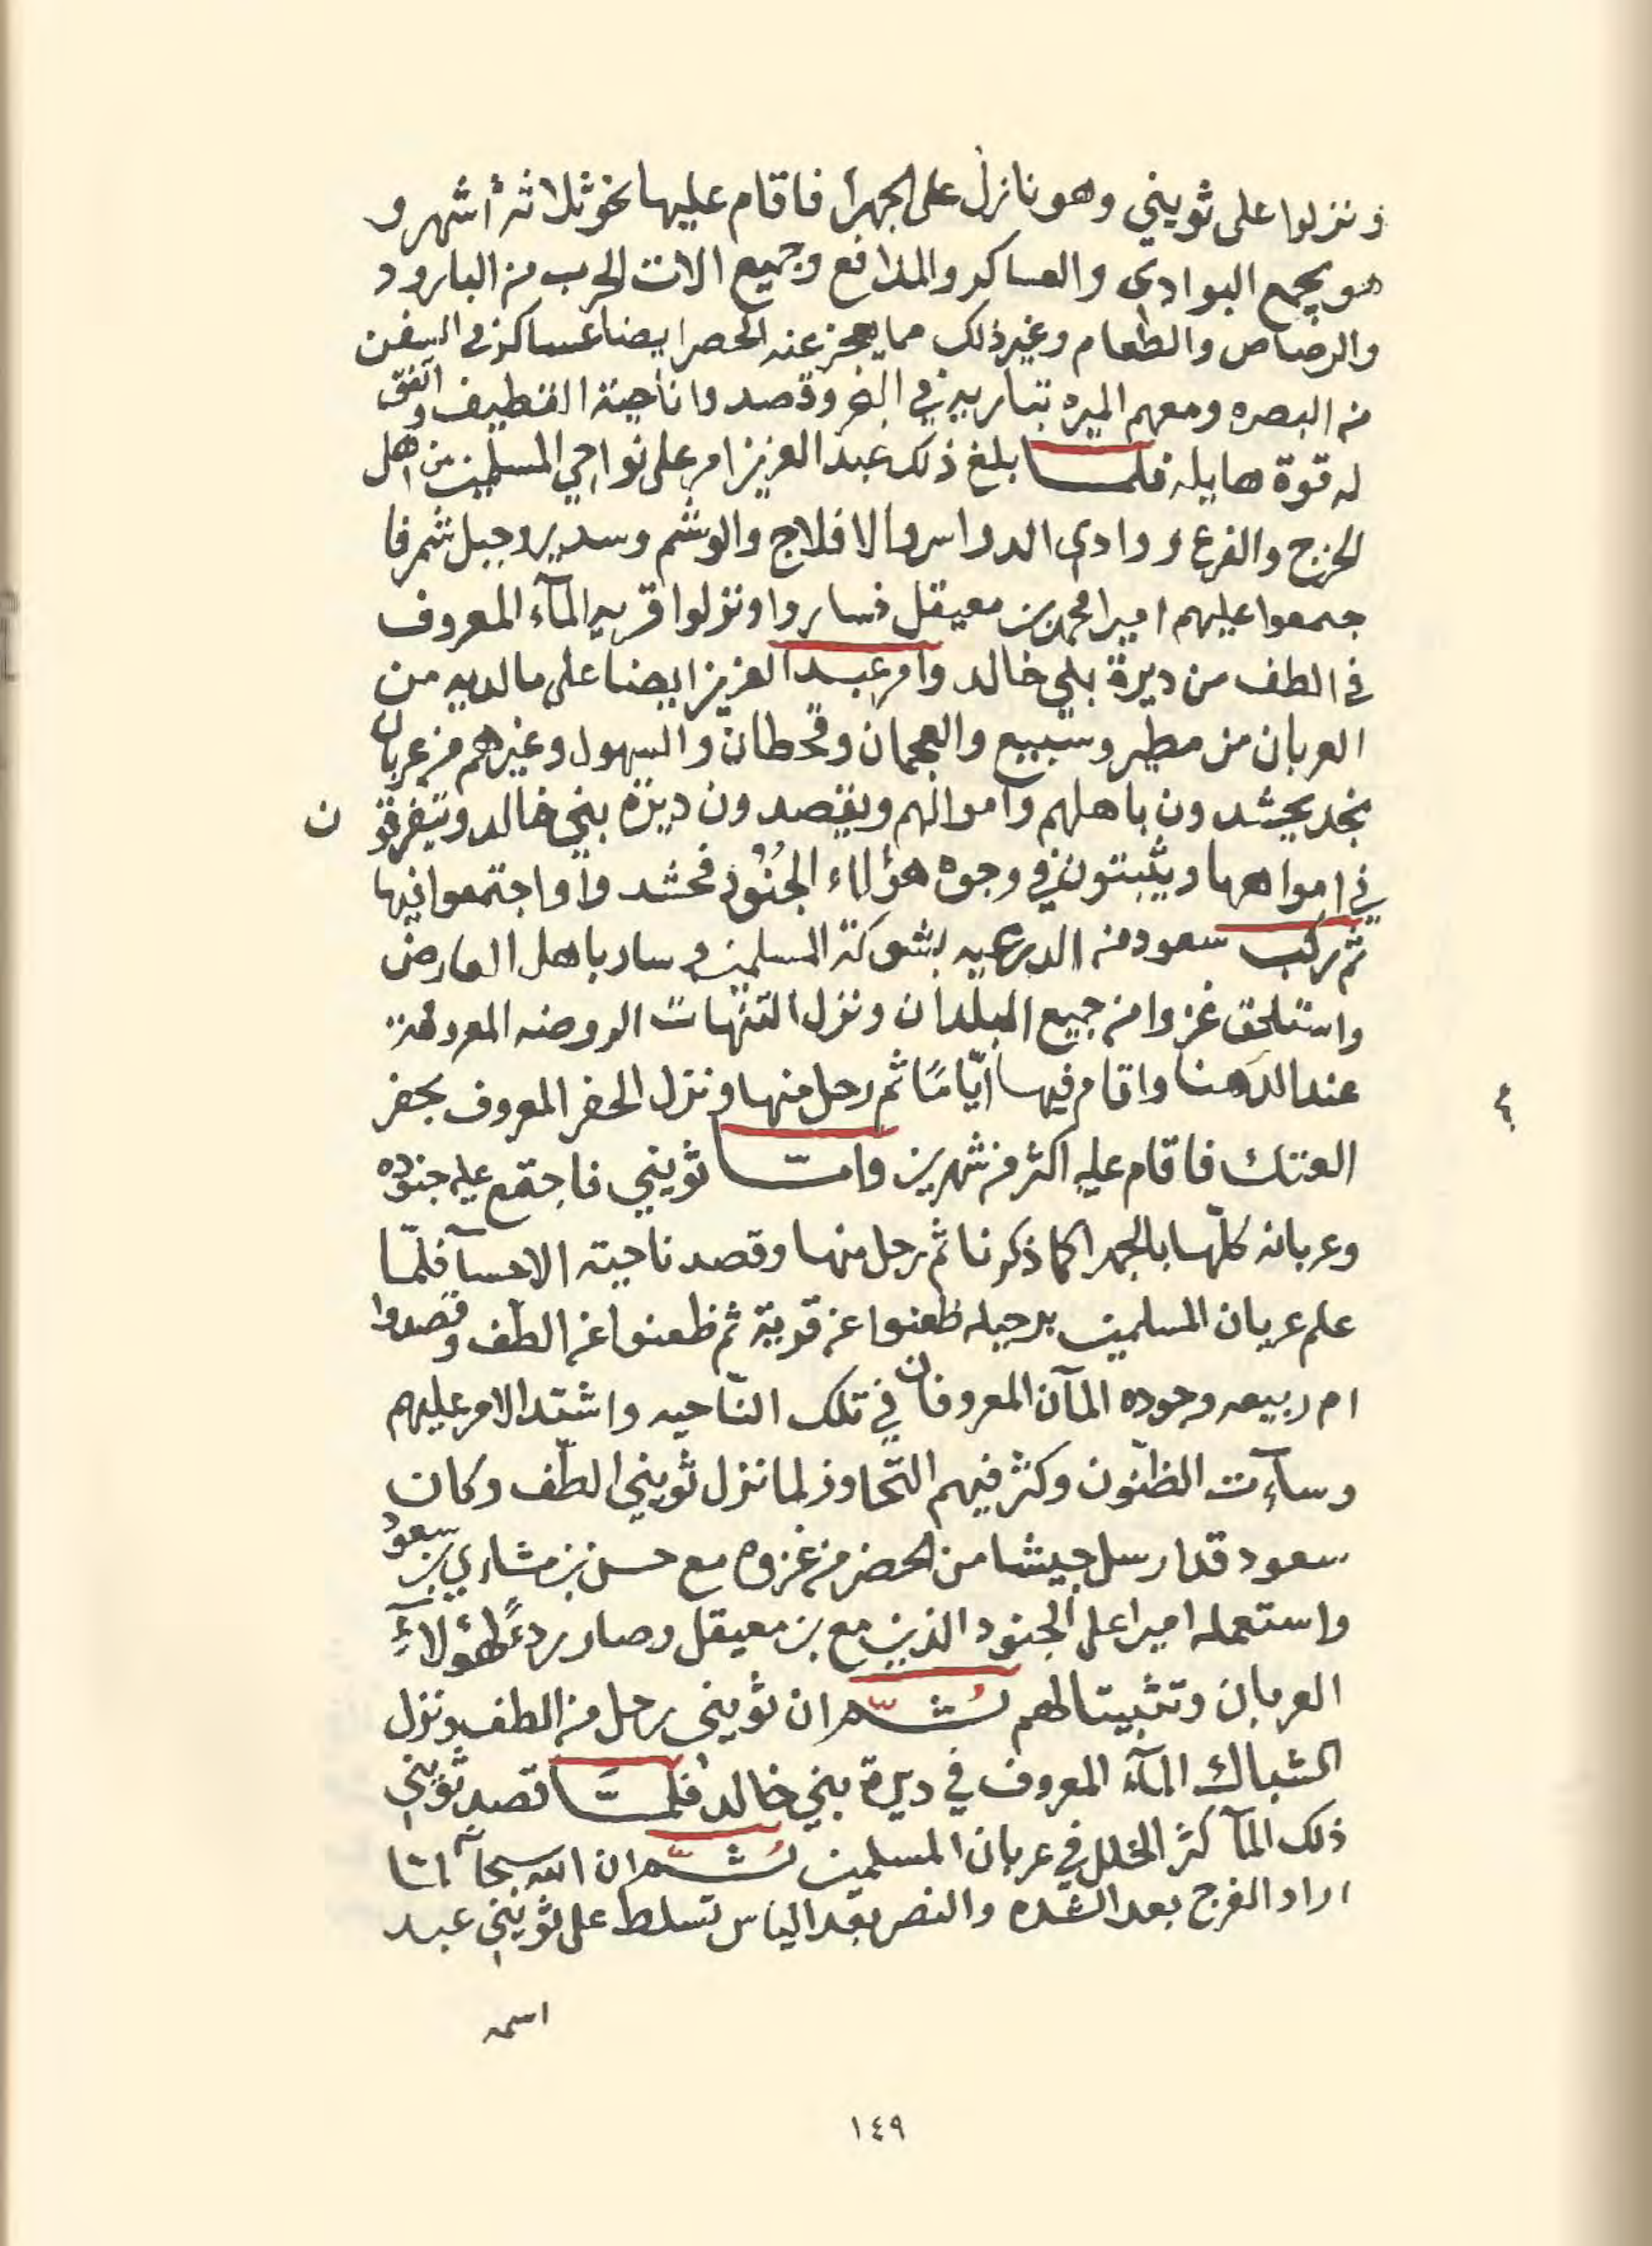 ونزلوا على ثويني وهو نازل على الجهرأ فاقام عليها نحو ثلاثه أشهر و
هو يجمع البوادى والعساكر والمدافع وجميع الات الحرب من البارود
والرصاص والطعام وغير ذلك مما يعجز عنه الحصر ايضا عساكر في السفن
من البصره ومعهم الميره تباريه في البحر وقصدوا ناحية القطيف واتفق
له قوة هايله فلما بلغ ذلك عبد العزيز امر على نواحي المسلمين من اهل
الخرج والفرع ووادي الدواسر والافلاج والوشم وسدير وجبل شمر فا
جتمعوا عليهم اميرا محمد بن معيقل فساروا ونزلوا قريه المآء المعروف
في الطف من ديرة بني خالد وامر عبد العزيز ايضا على مالديه من
العربان من مطير وسبيع والعجمان وقحطان والسهول وغيرهم من عربان
نجد يحشدون باهلهم واموالهم ويقصدون ديرة بني خالد ويتفرقو ن
في امواهها ويثبتون في وجوه هؤلاء الجنود فحشدوا واجتمعوا فيها
ثم ركب سعود من الدرعيه بشوكة المسلمين وسار باهل العارض
واستلحق غزوا من جميع البلدان ونزل التنهات الروضه المعروفة
عند الدهنا واقام فيها ايّامًا ثم رحل منها ونزل الحفر المعروف بحفر
العتك فاقام عليه اكثر من شهرين وامّا ثويني فاجتمع عليه جنوده
وعربانه كلّها بالجهرا كما ذكرنا ثم رحل منها وقصد ناحية الاحسآ فلمّا
علم عربان المسلمين برحيله ظعنوا عن قرية ثم ظعنوا عن الطّف وقصدوا
ام ربيعه وجوده المآن المعروفان في تلك النّاحيه واشتد الامر عليهم
وسآءت الظنّون وكثر فيهم التّحاوذ لما نزل ثويني الطّف وكان
سعود قد ارسل جيشا من الحضر من غزوه مع حسن بن مشاري بن سعود
واستعمله اميرا على الجنود الذين مع بن معيقل وصار ردءً لهؤلآءِ
العربان وتثبيتا لهم ثُمّ ان ثويني رحل من الطف ونزل
الشباك المآء المعروف في ديرة بني خالد فلمّا قصد ثويني
ذلك المآ كثر الخلل في عربان المسلمين ثُمّ ان الله سبحآ لمّا
اراد الفرج بعد الشّده والنصر بعد الياس تسلط على ثويني عبد
اسمه
١٤٩